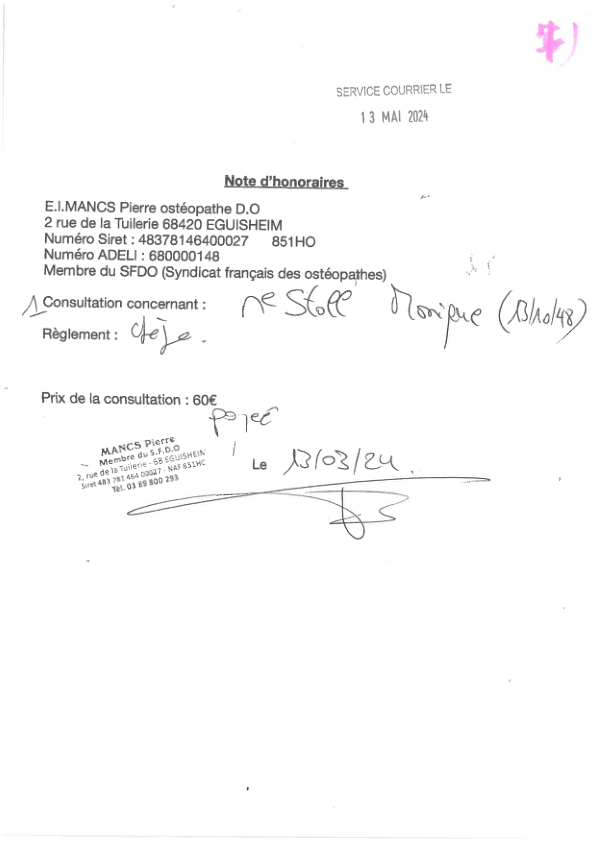 SERVICE COURRIER LE
13 MAI 2024
Note d'honoraires
E.I.MANCS Pierre ostéopathe D.O
2 rue de la Tuilerie 68420 EGUISHEIM
Numéro Siret : 48378146400027 851HO
Numéro ADELI : 680000148
Membre du SFDO (Syndicat français des ostéopathes)
1 Consultation concernant : Me Stoll Monique (13/10/48)
Règlement :
Prix de la consultation : 60€
payé
MANCS Pierre
Membre du S.F.D.O
2, rue de la Tuilerie - 68 EGUISHEIM
Siret 483 781 464 00027 - NAF 851HC
Tél. 03 89 800 293
Le 13/03/24.